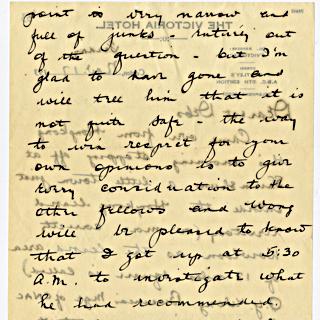 point is very narrow and
full of junks - entirely out
of the question but I'm
glad to have gone and
will tell him that it is
not quite safe - the way
to win respect for your
own opinions is to give
every consideration to the
other fellows and Wong
will be pleased to know
that I got up at 5:30
A.M. to investigate what
he had recommended.
THE VICTORIA HOTEL